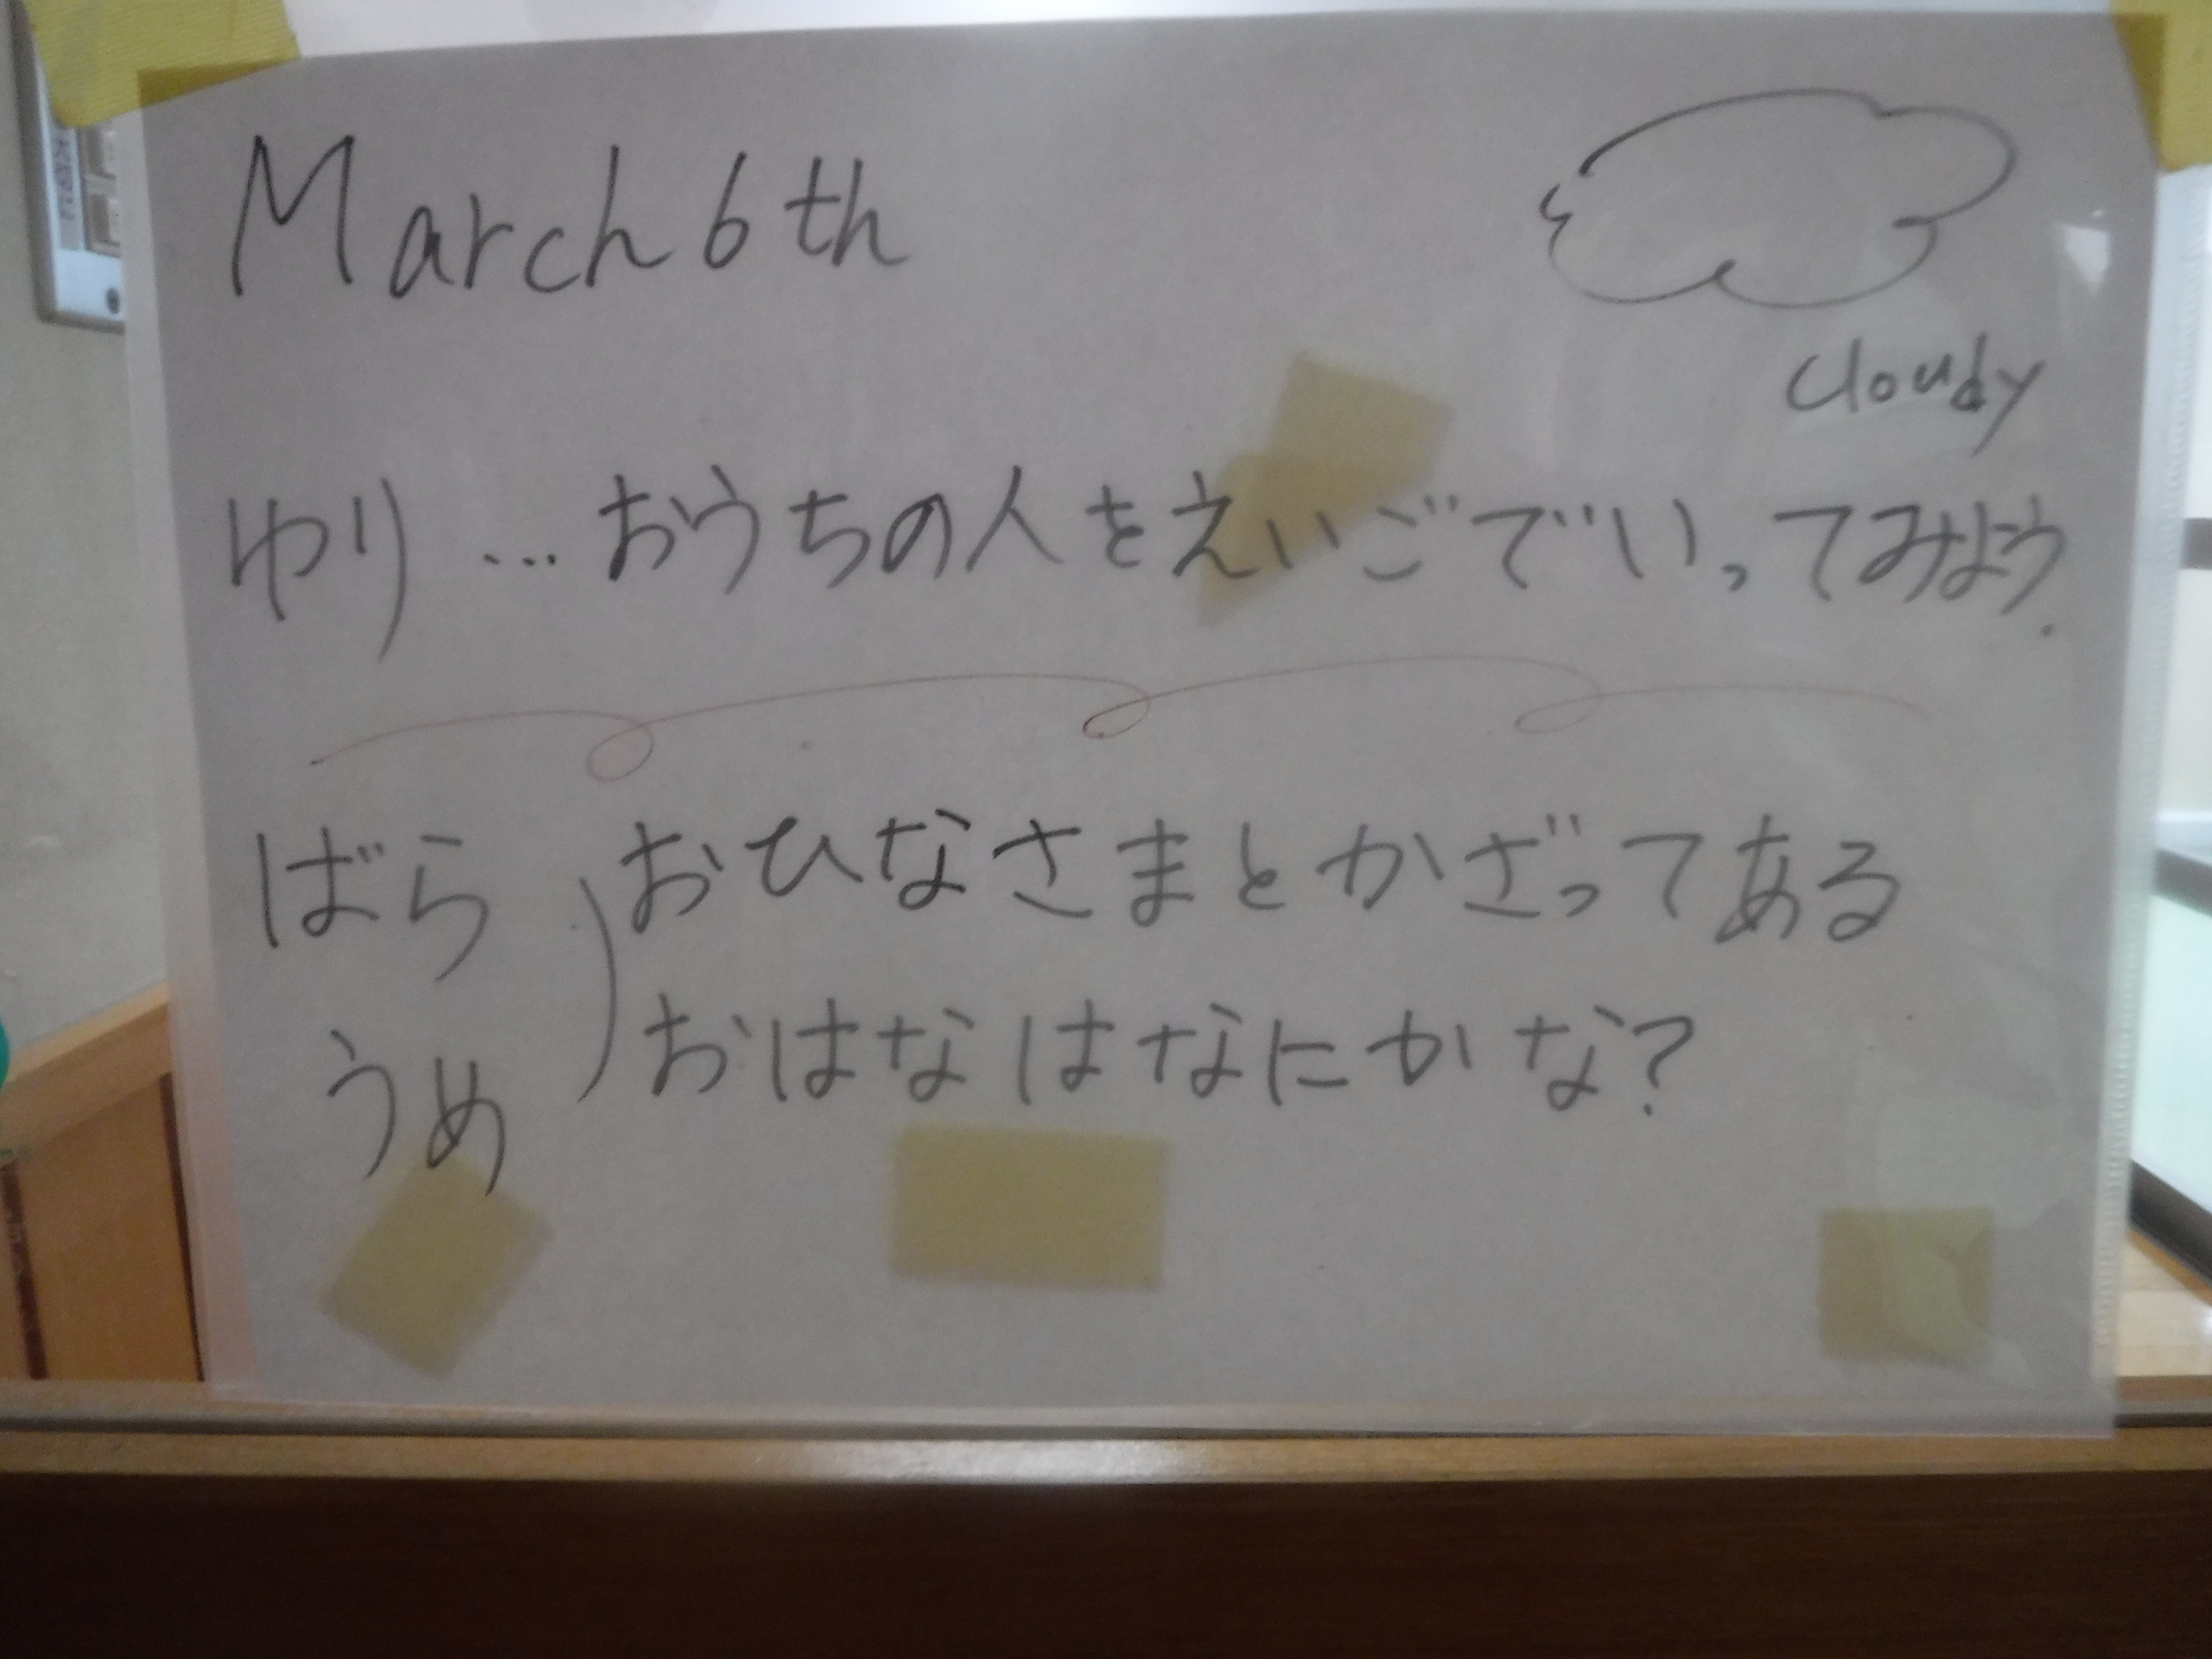 March 6th
cloudy
ゆり…おうちの人をえいごでいってみよう.
ばら
うめ
おひなさまとかざってある
おはなはなにかな?